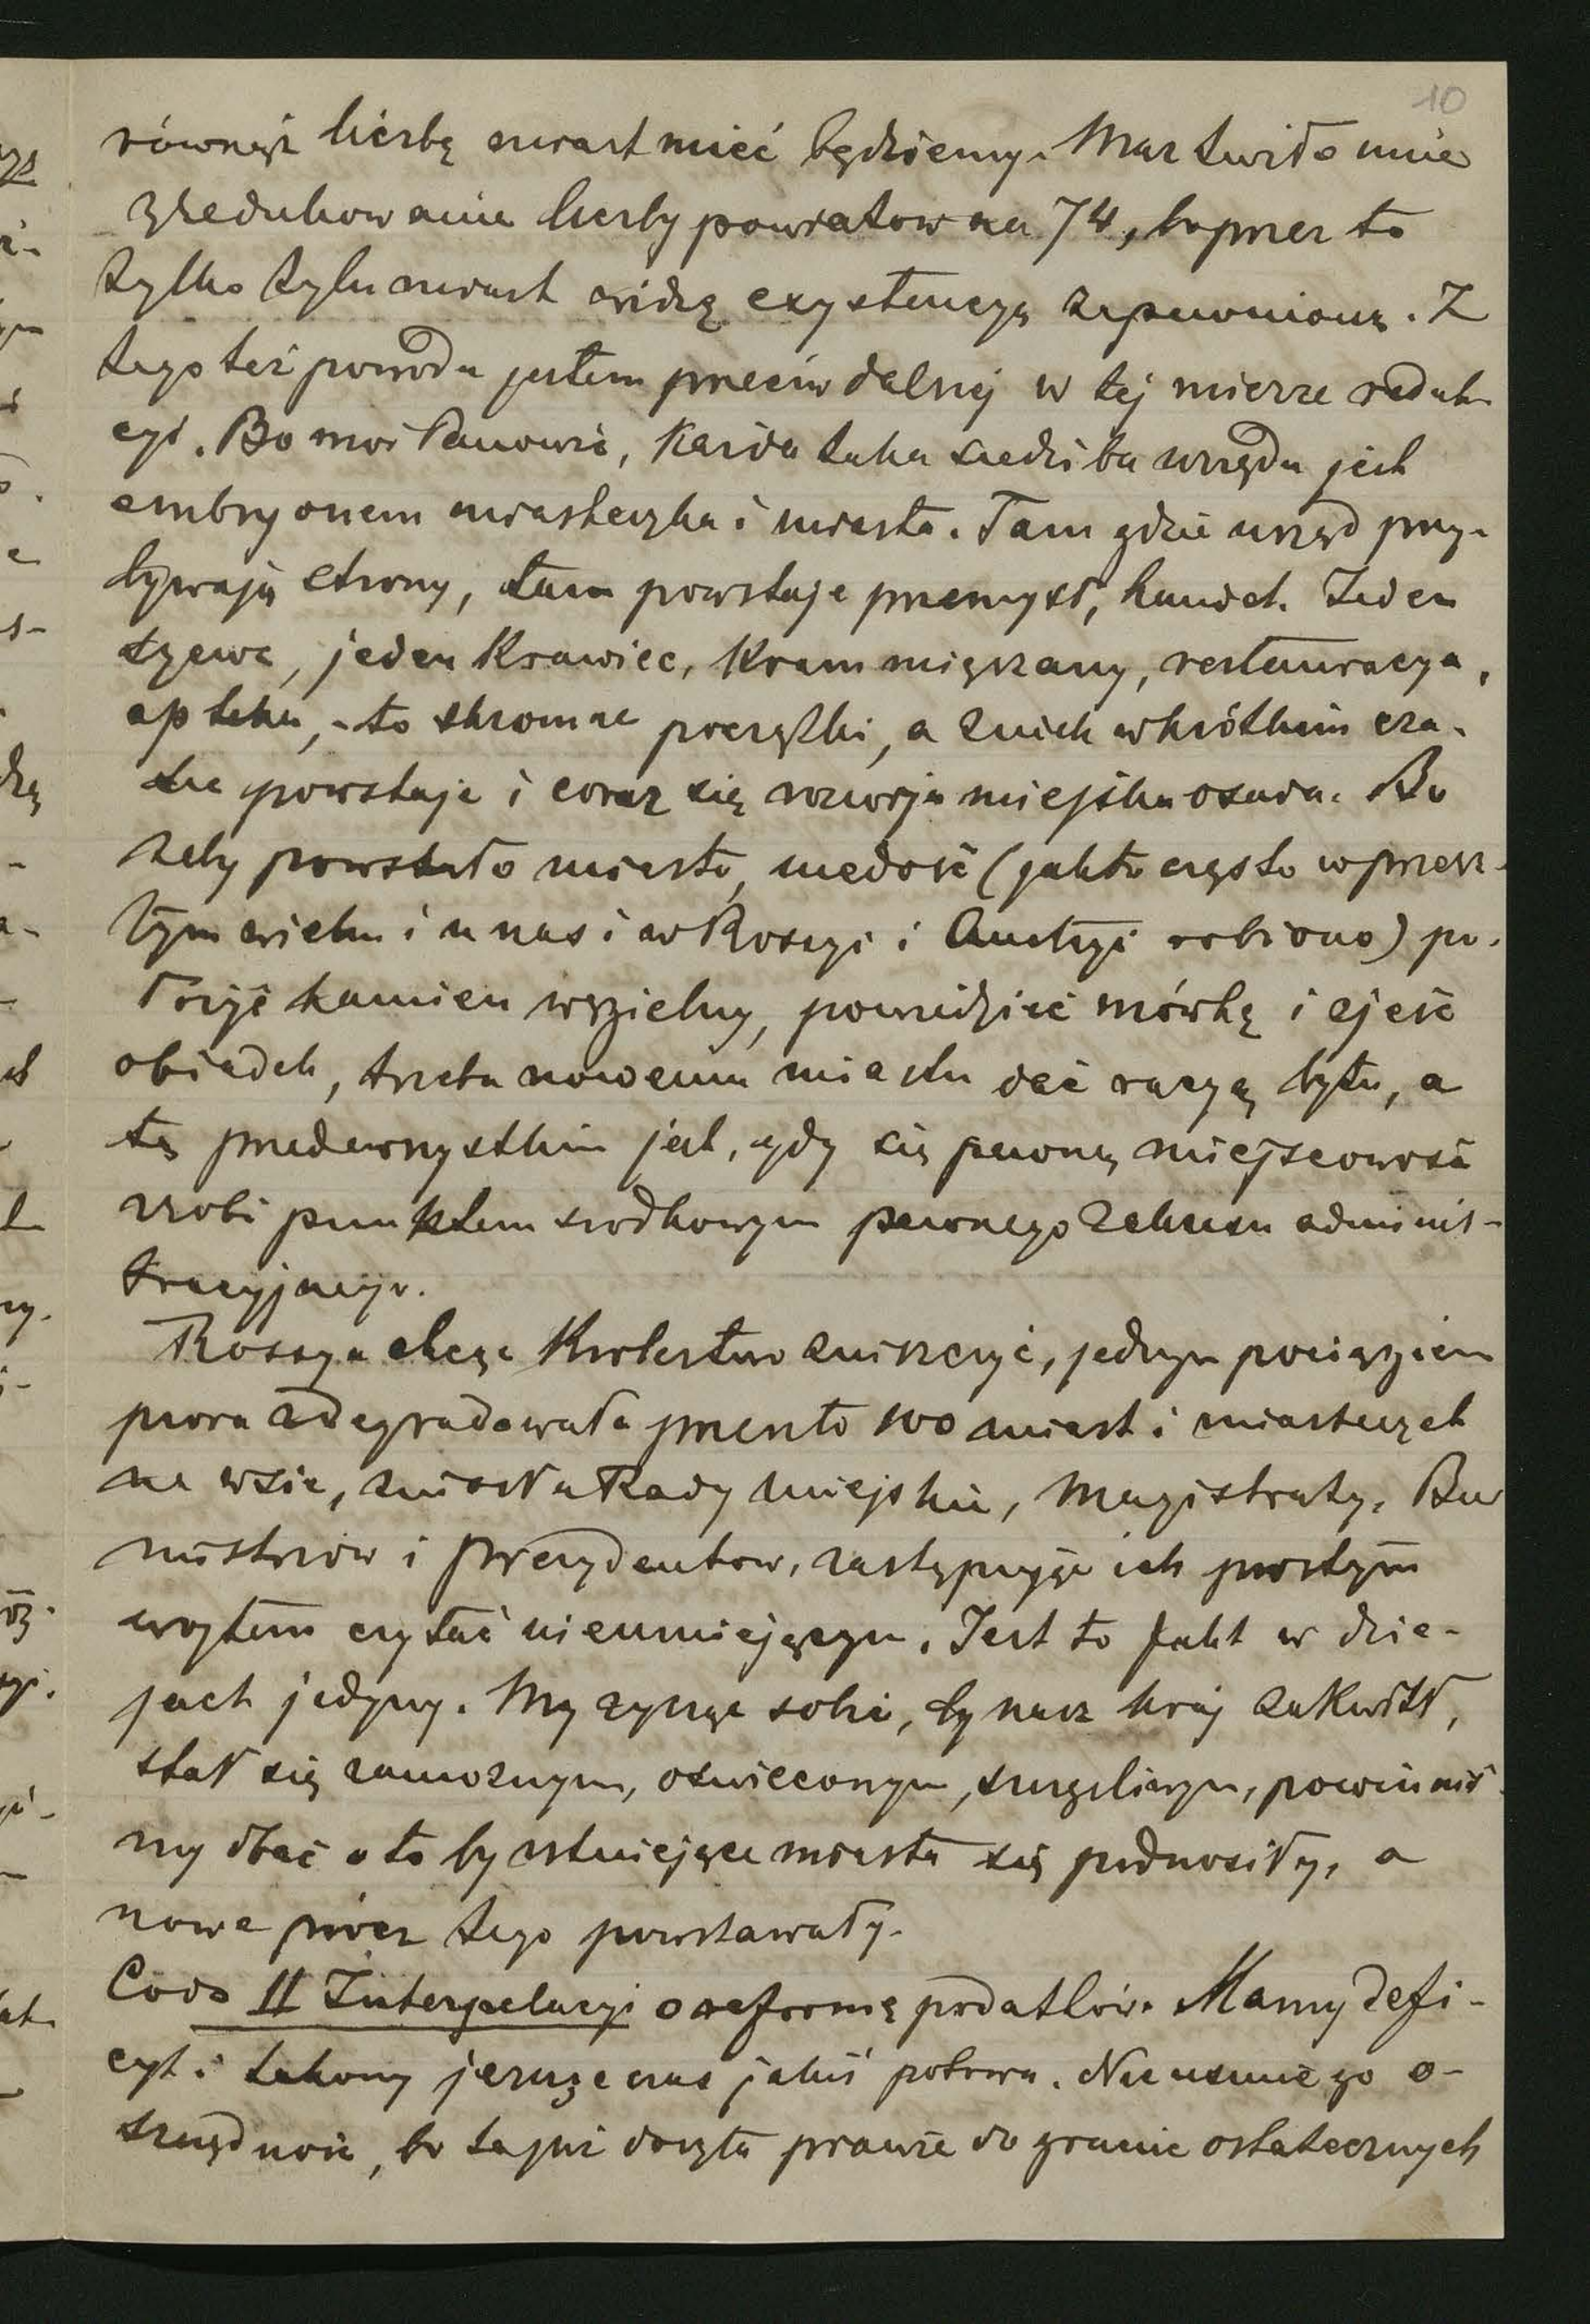 10
równąż liczbę miast mieć będziemy. Martwiło mnie
zredukowanie liczby powiatow na 74, bo przez to
tylko tylu miast widzę exystencyą zapewnioną. Z
tego też powodu jestem przeciw dalszej w tej mierze reduk-
cyi. Bo moi Panowie, Każda taka siedziba urzędu jest
embryonem miasteczka i miasta. Tam gdzie urząd przy-
bywają strony, tam powstaje przemysł, handel. Jeden
szewc, jeden Krawiec, Kram mięszany, restauracya,
apteka, - to skromne początki, a z nich w krótkim cza-
sie powstaje i coraz się rozwija miejska osada. Bo
żeby powstało miasto, niedość (jak to często w przesz-
łym wieku i u nas i w Rosyi i Austryi robiono) po-
łożyć kamien węgielny, powiedzieć mówkę i zjeść
obiadek, trzeba nowemu miastu dać racyą bytu, a
tą przedewszystkim jest, gdy się pewną miejscowość
zrobi punktem srodkowym pewnego zakresu adminis-
tracyjnego.
Rossya chcąc Krolestwo zniszczyć, jednym pociągiem
piora zdegradowała przeszło 100 miast i miasteczek
na wsie, zniosła Rady miejskie, Magistraty, Bur
mistrzów i Prezydentow, zastępując ich prostym
wojtem czytać nieumiejącym. Jest to fakt w dzie-
jach jedyny. My zycząc sobie, by nasz kraj zakwitł,
stał się zamoznym, oswieconym, szczęsliwym, powinniś
my dbać o to by istniejące miasta się podnosiły, a
nowe prócz tego powstawały.
Co do II Interpelacyi o reformę podatków. Mamy defi-
cyt i takowy jeszcze czas jakiś potrwa. Nie usunie go o-
szczędność, bo ta już doszła prawie do granic ostatecznych